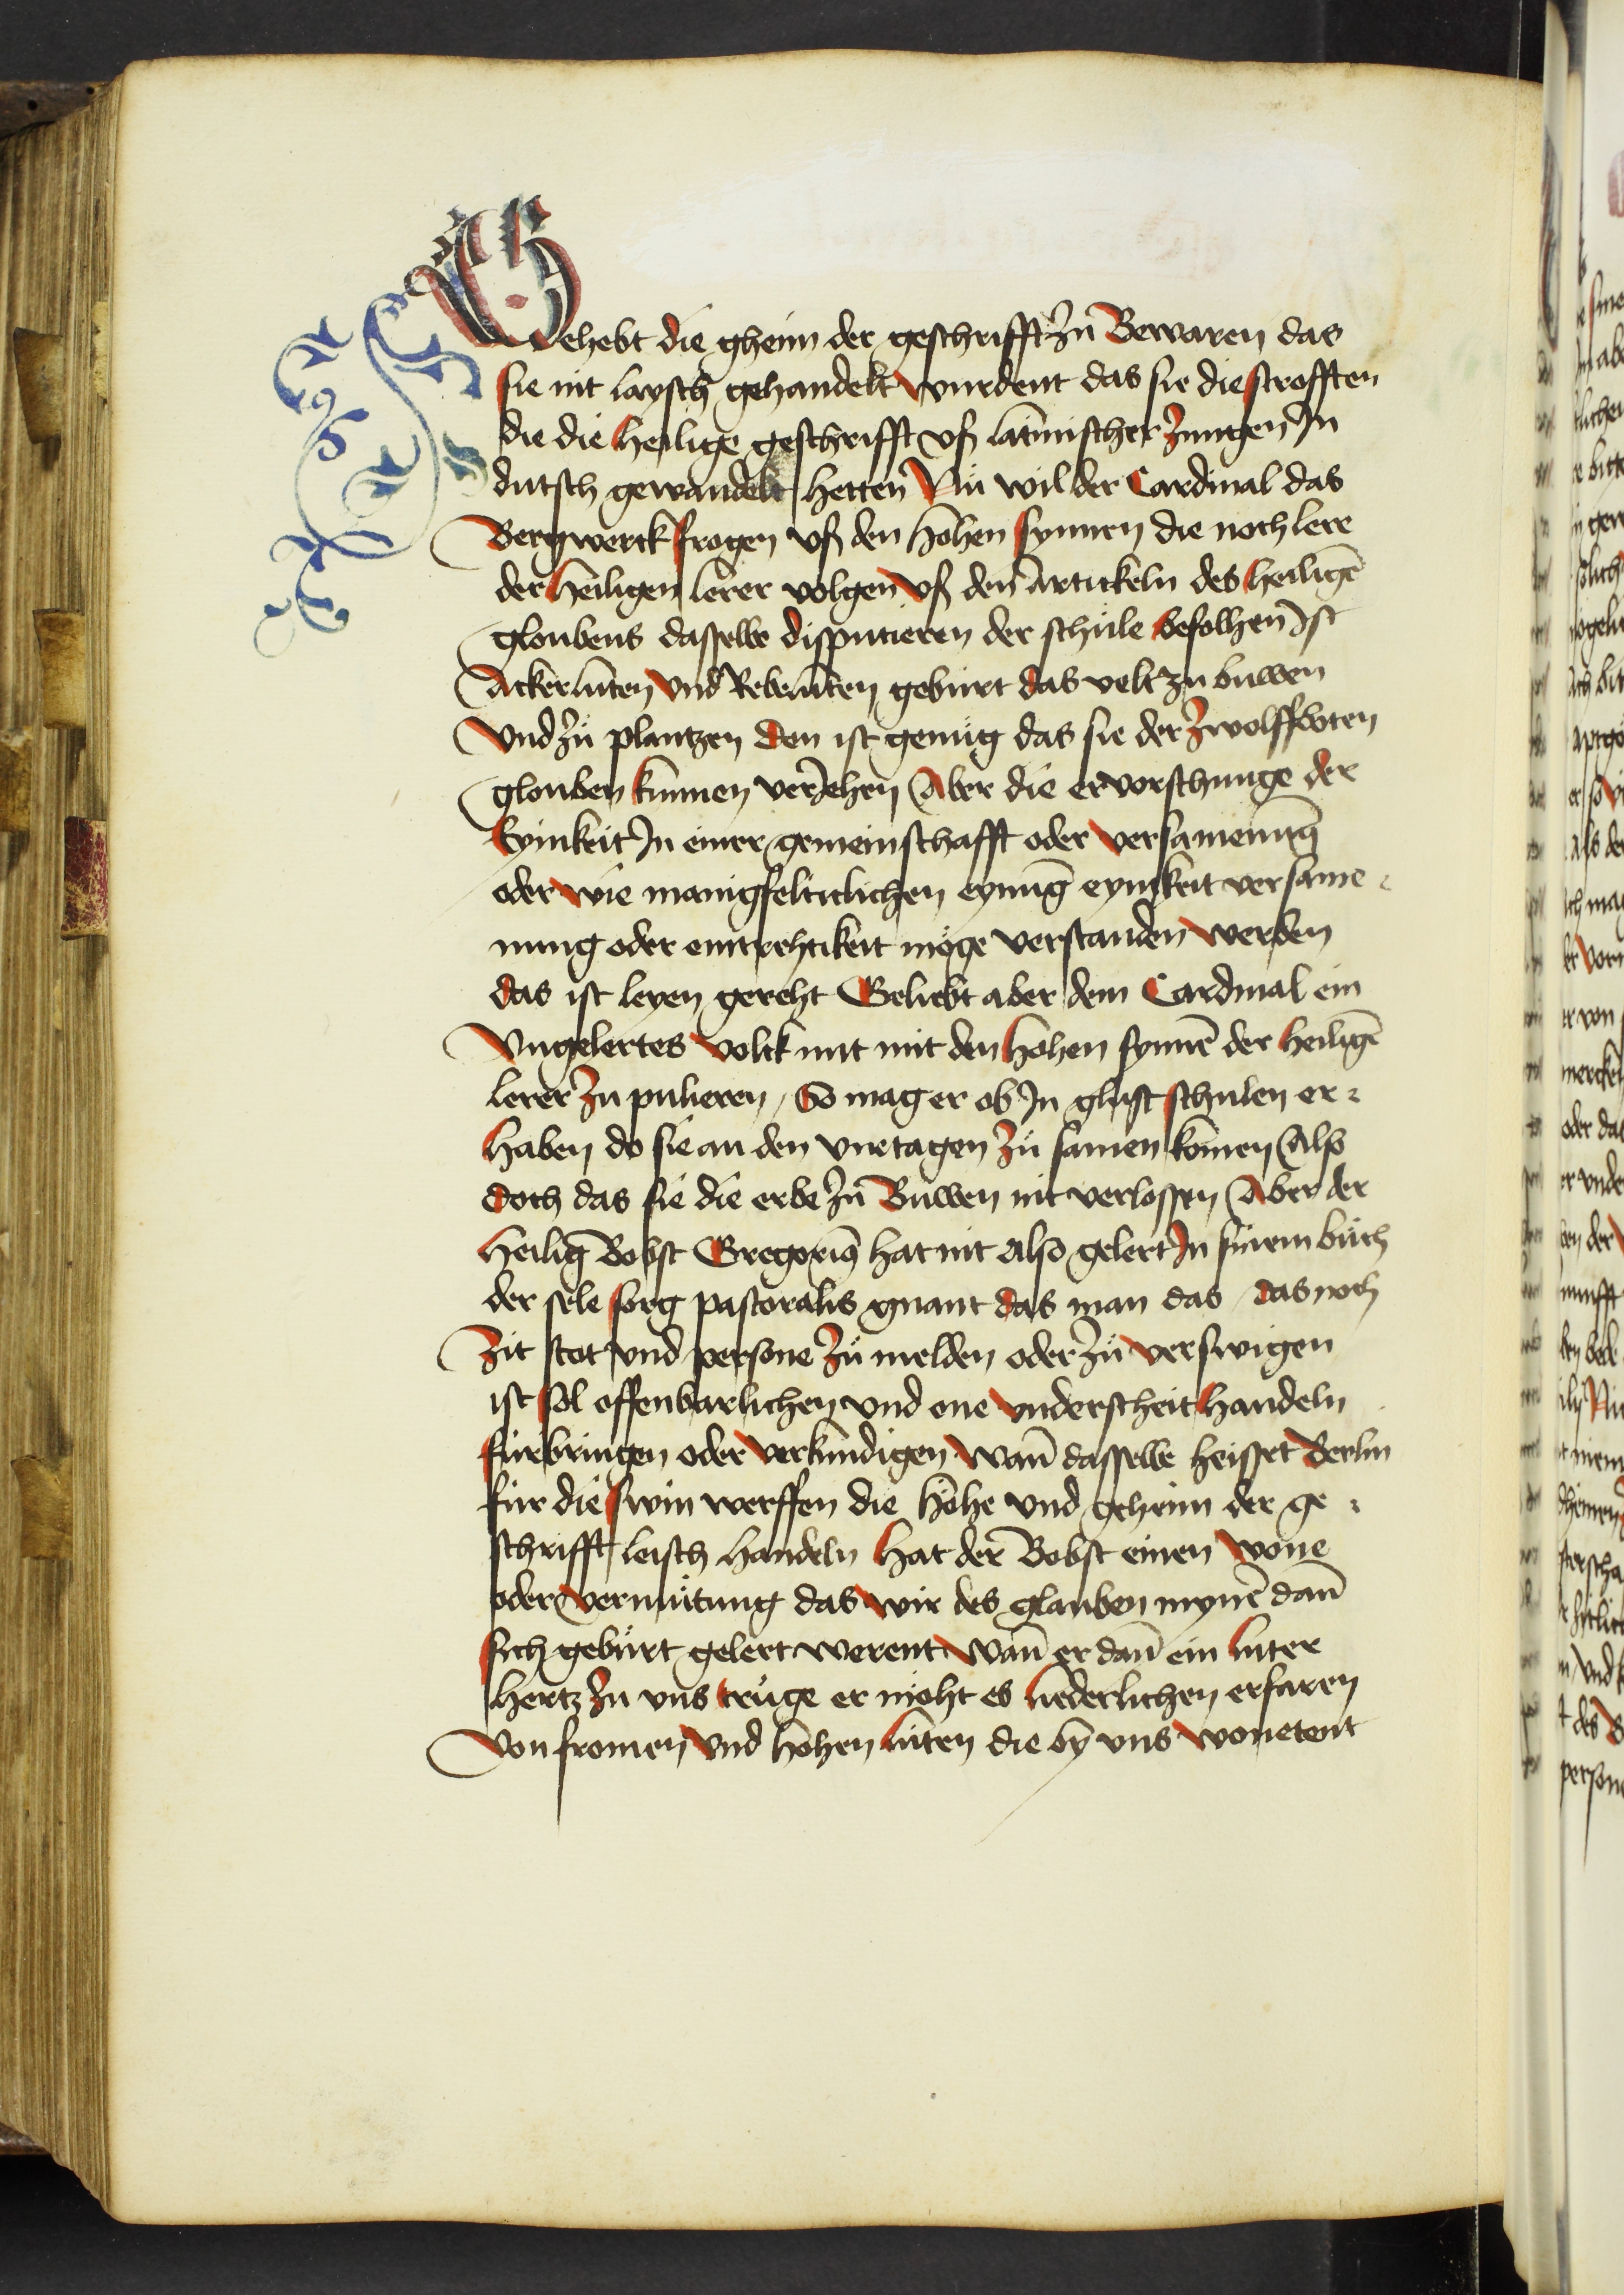 Gehebt die gheim der geschrifft zů Bewaren das
sie nit leysch gehandelt wurdent das sie die strofften
die die heilige geschrifft vß latinischer zungen In
dutsch gewandelt hetten Nü wil der Cardinal das
Bergwerck frogen vß den hohen synnen die noch lere
der heiligen lerer volgen vß den artickeln des heiligē
gloubens dasselbe disputieren der schule befolhen Ist
Ackerlüten vnd Rebelüten gebürt das velt zu buwen
Vnd zů plantzen den ist genůg das sie der zwolffboten
glouben kunnen veriehen Aber die ervorschunge der
Eynikeit In einer gemeinschafft oder versamenūg
oder wie manigfelticlichen eynūg eynikeit versame
nung oder eintrehtikeit möge verstanden werden
das ist leyen gereht Geliebt aber dem Cardinal ein
Vngelertes volck mit den hohen synnē der heiligē
lerer zu pulieren / So mag er ob In glust schulen er
haben do sie an den viretagen zů samen komen Also
doch das sie die erbe zů Buwen nit verlossen Aber der
heilig Bobst Gregoriꝰ hat nit also gelert In sinem bůch
der sele sorg pastoralis gnant das man das / das noch
Zit stat vnd persone zů melden oder zů verswigen
ist sol offenbarlichen vnd one vnderscheit handeln
fürbringen oder verkündigen wan̄ dasselbe heisset Berlin
für die swin werffen die höhe vnd geheim der ge
schrifft leisch handeln hat der Bobst einen wone
oder vermůtung das wir des glauben mynre dan̄
sich gebürt gelert werent wan̄ er dan̄ ein luter
hertz zu vns trüge er möht es liederlichen erfaren
Von fromen vnd hohen lüten die by vns wonetent